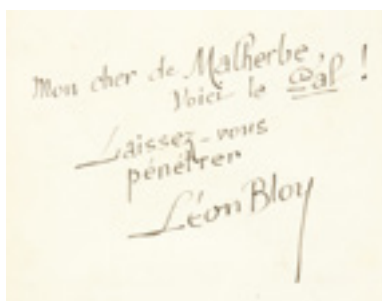 Mon cher de Malherbe,
Voici le Pal !
Laissez-vous
pénétrer
Léon Bloy